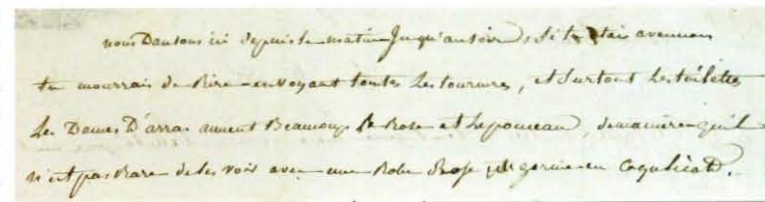 nous Dansons ici depuis le matin Jusqu'au soir. Si tu étais avec nous
tu mourrais de Rire en voyant toutes Les tournures, et Surtout Les toilettes
Les Dames D'arras aiment Beaucoup le Rose et Le ponceau, de manière qu'il
n'est pas Rare de les voir avec une Robe Rose garnie en Coquelicot.